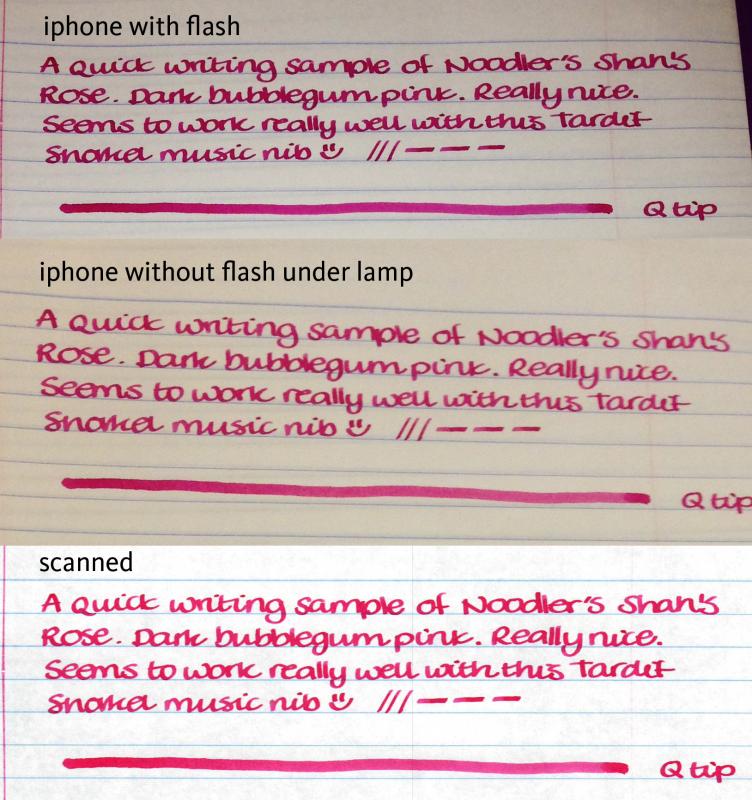 iphone with flash
A Quick writing sample of Noodler's Shah's
Rose. Dark bubblegum pink. Really nice.
Seems to work really well with this Tardif
Snorkel music nib
Q tip
iphone without flash under lamp
A Quick writing sample of Noodler's Shah's
Rose. Dark bubblegum pink. Really nice.
Seems to work really well with this Tardif
Snorkel music nib
Q tip
scanned
A Quick writing sample of Noodler's Shah's
Rose. Dark bubblegum pink. Really nice.
Seems to work really well with this Tardif
Snorkel music nib
Q tip